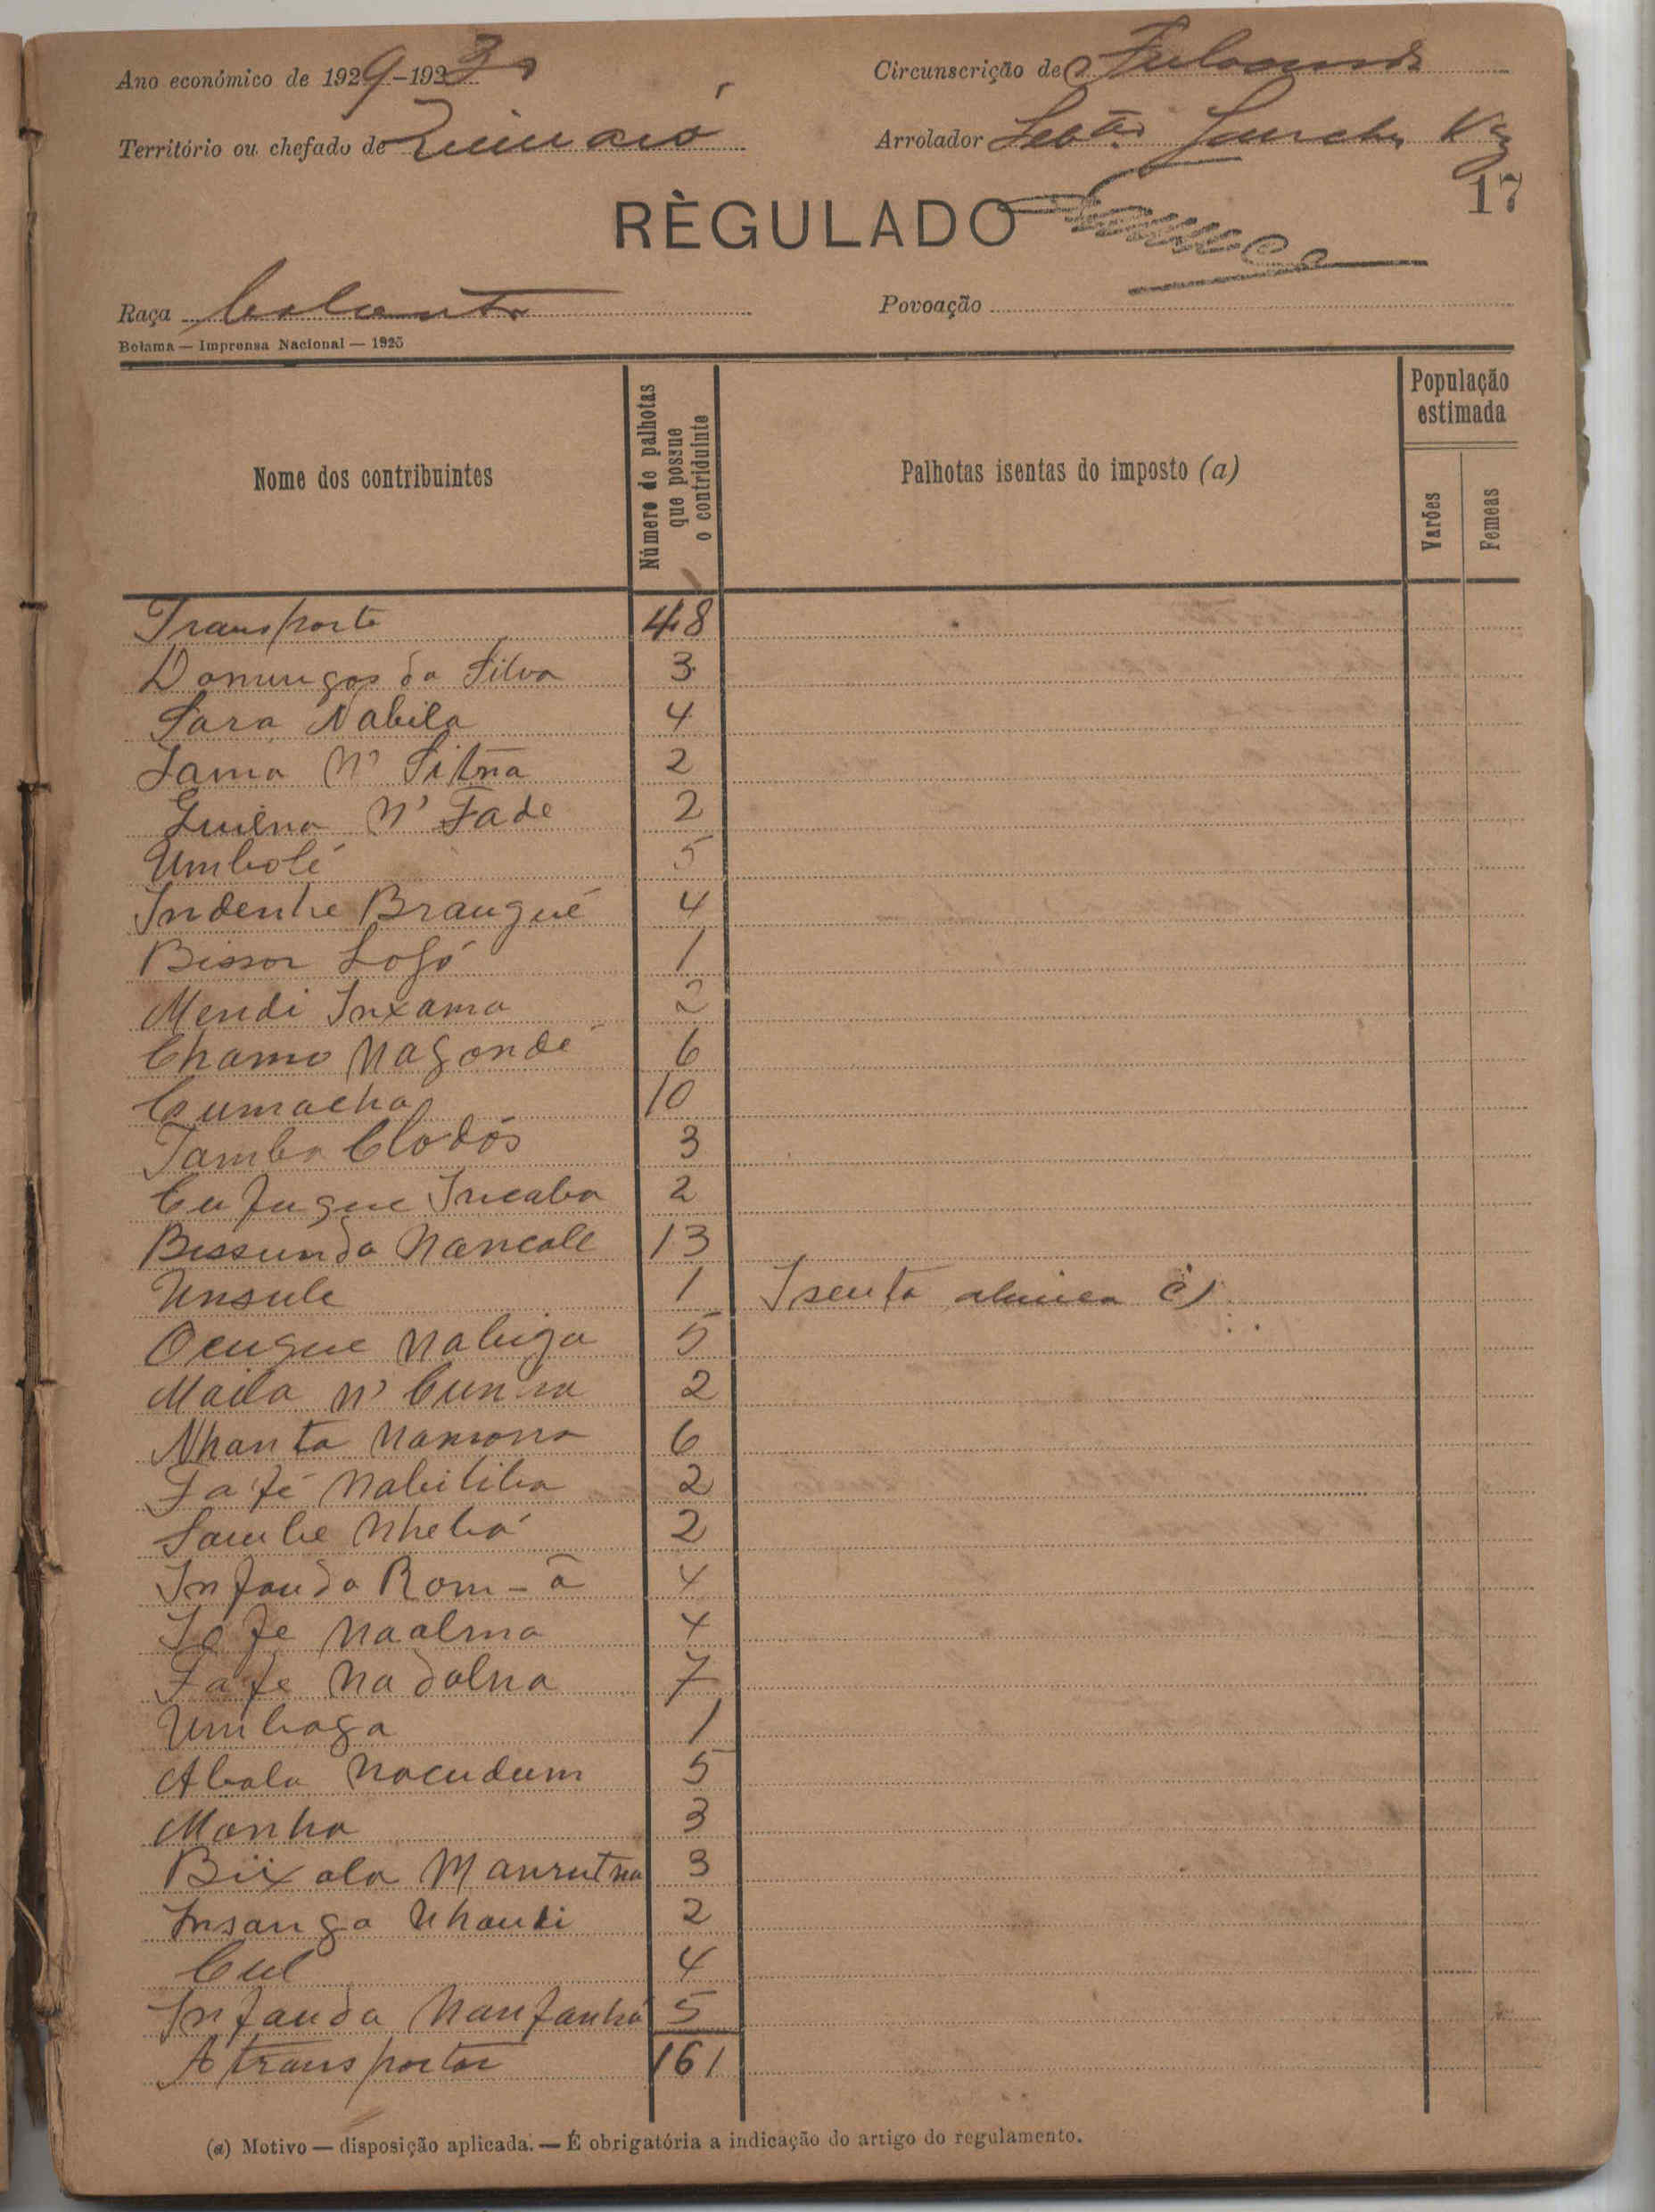 Ano económico de 1929-1930
Circunscrição de Fulacunda
Território ou chefado de
Arrolador Sebᵃᵒ Sanches Vᶻ
17
RÈGULADO
Raça balanta
Povoação
Bolama — Imprensa Nacional — 1925
Nome dos contribuintes
Número de palhotas que possue o contriduinte
Palhotas isentas do imposto (a)
População estimada
Varões
Femeas
Transporte 48
Domingos da Silva 3
Sara Nabila 4
Jama N' Sitna 2
Guilna N' Fade 2
Umbolé 5
Indenhe Brangué 4
Bissor Lofó 1
Mendi Inxama 2
Chamo Nagondé 6
Cumacha 10
Tamba Clodós 3
Cufugue Incaba 2
Bissunda Nancale 13
Unsule 1 Isenta alinea c)
Ocugue Nabiga 5
Maila N' Cunha 2
Nhanta Namona 6
Fafé Nabitiba 2
Sambe Nhebá 2
Infanda Rom-ã 4
Fafe Naalma 4
Fafe Nadolna 7
Umbaga 1
Abala Nacudum 5
Monha 3
Biixala Manrutna 3
Insanga Nhanki 2
Cul 4
Infanda Nanfanha 5
A transportar 161
(a) Motivo — disposição aplicada. — É obrigatória a indicação do artigo do regulamento.